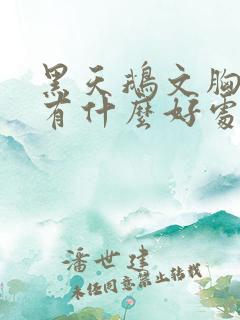 黑天鵝文胸
有什麼好處
潘世建
未经同意禁止转载